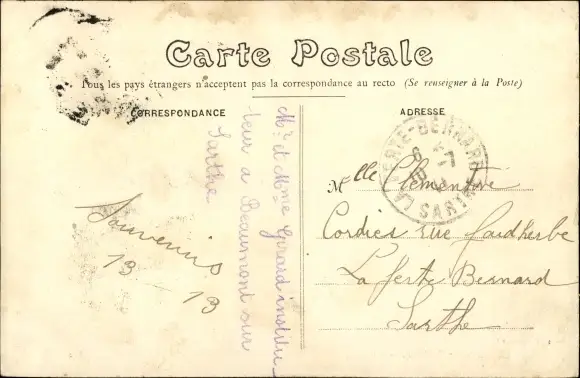 Carte Postale
Tous les pays étrangers n'acceptent pas la correspondance au recto (Se renseigner à la Poste)
CORRESPONDANCE
ADRESSE
Mr et Mme Girard institu
teur a Beaumont sur
Sarthe
Souvenirs
13
13
LA FERTE-BERNARD
SARTHE
Melle Clementine
Cordier rue faidherbe
La ferte Bernard
Sarthe